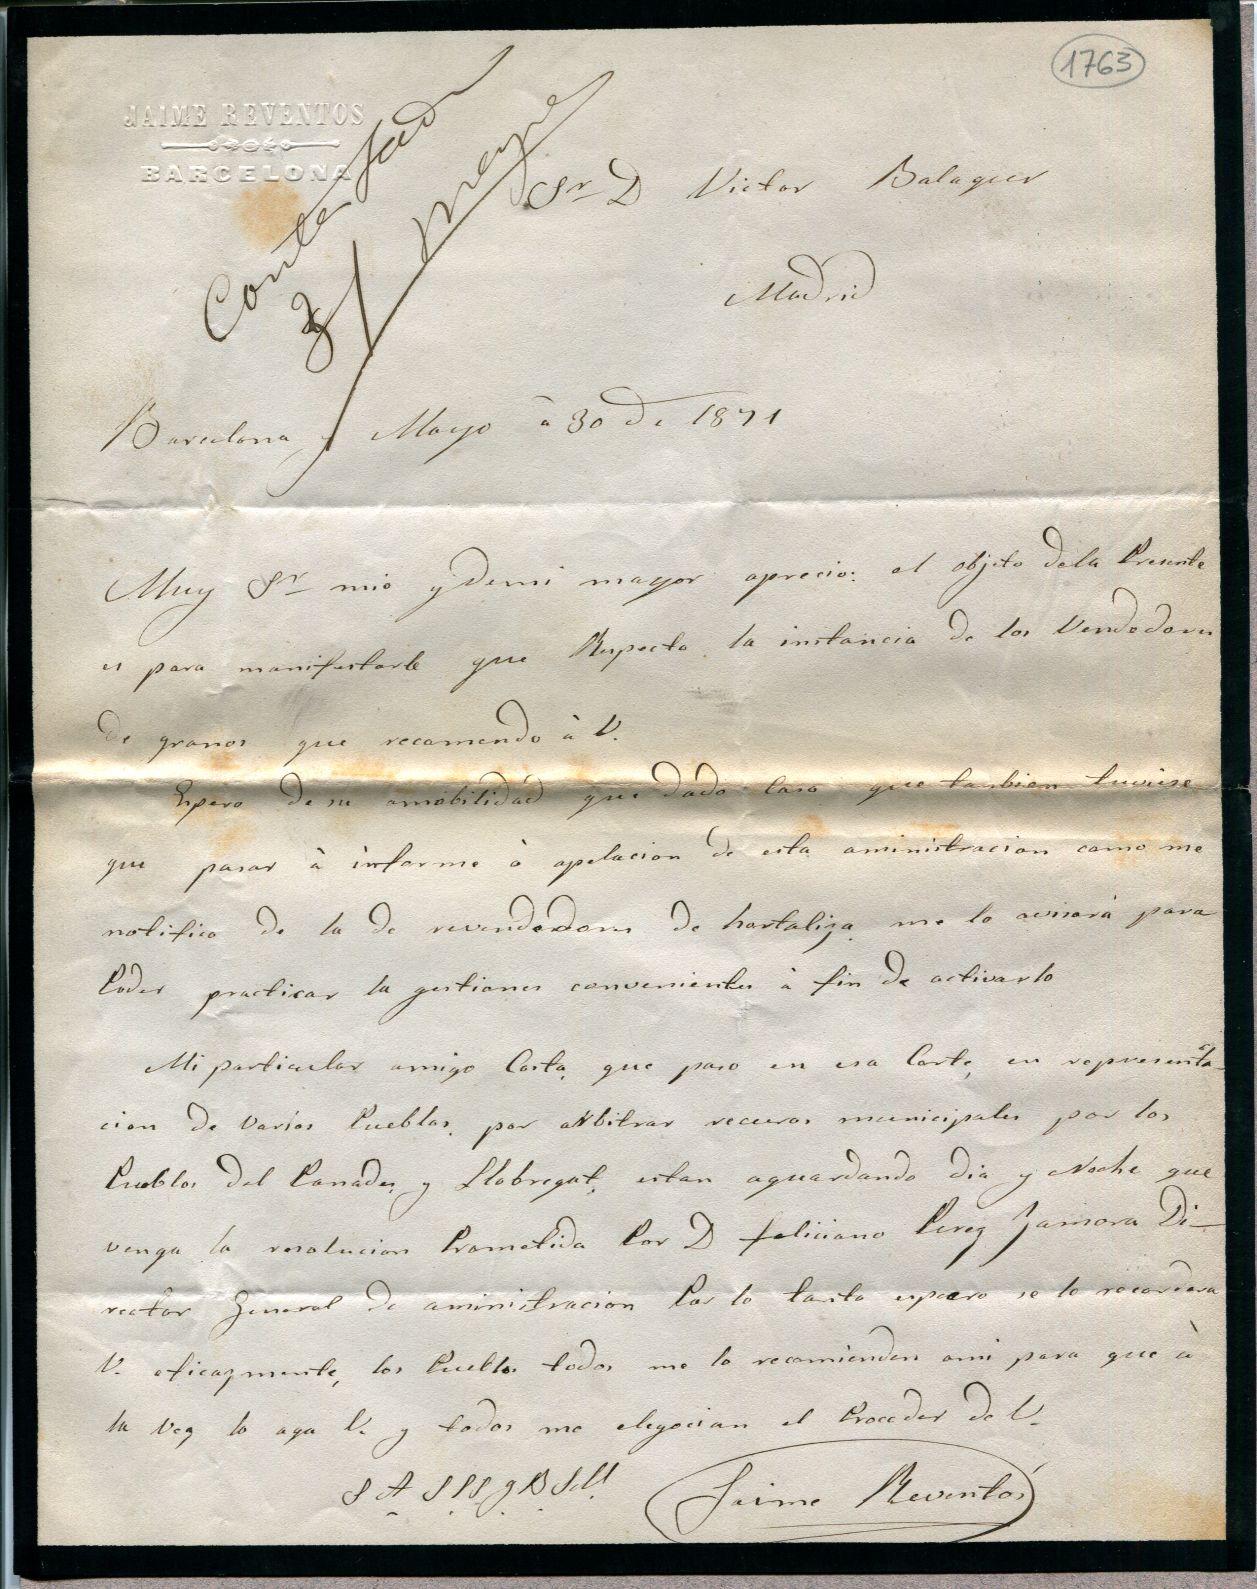 1763
JAIME REVENTOS
BARCELONA
Contestada
31 mayo
Sr D Victor Balaguer
Madrid
Barcelona y Mayo à 30 de 1871
Muy Sr mio y demi mayor aprecio: el objeto dela Presente
es para manifestarle que Respecto la instancia de los Vendedores
de granos que recomendo à V.
Espero de su amabilidad que dado Caso que tanbien tuviese
que pasar à informe ò apelacion de esta aministracion como me
notifico de la de revendedores de hortaliza me lo avisará para
Poder practicar la gestiones convenientes à fin de activarlo
Mi particular amigo Costa, que paso en esa Corte, en representa
cion de varios Pueblos, por arbitrar recursos municipales por los
Pueblos del Panades, y Llobregat, estan aguardando dia y Noche que
venga la resolucion Prometida Por D Feliciano Perez Zamora Di-
rector General de aministracion Por lo tanto espero se lo recordara
V. eficazmente, los Pueblos todos me lo recomienden ami para que à
la vez lo aga V. y todos me elogian el Proceder de V.
S A SSS q B S M
Jaime Reventós